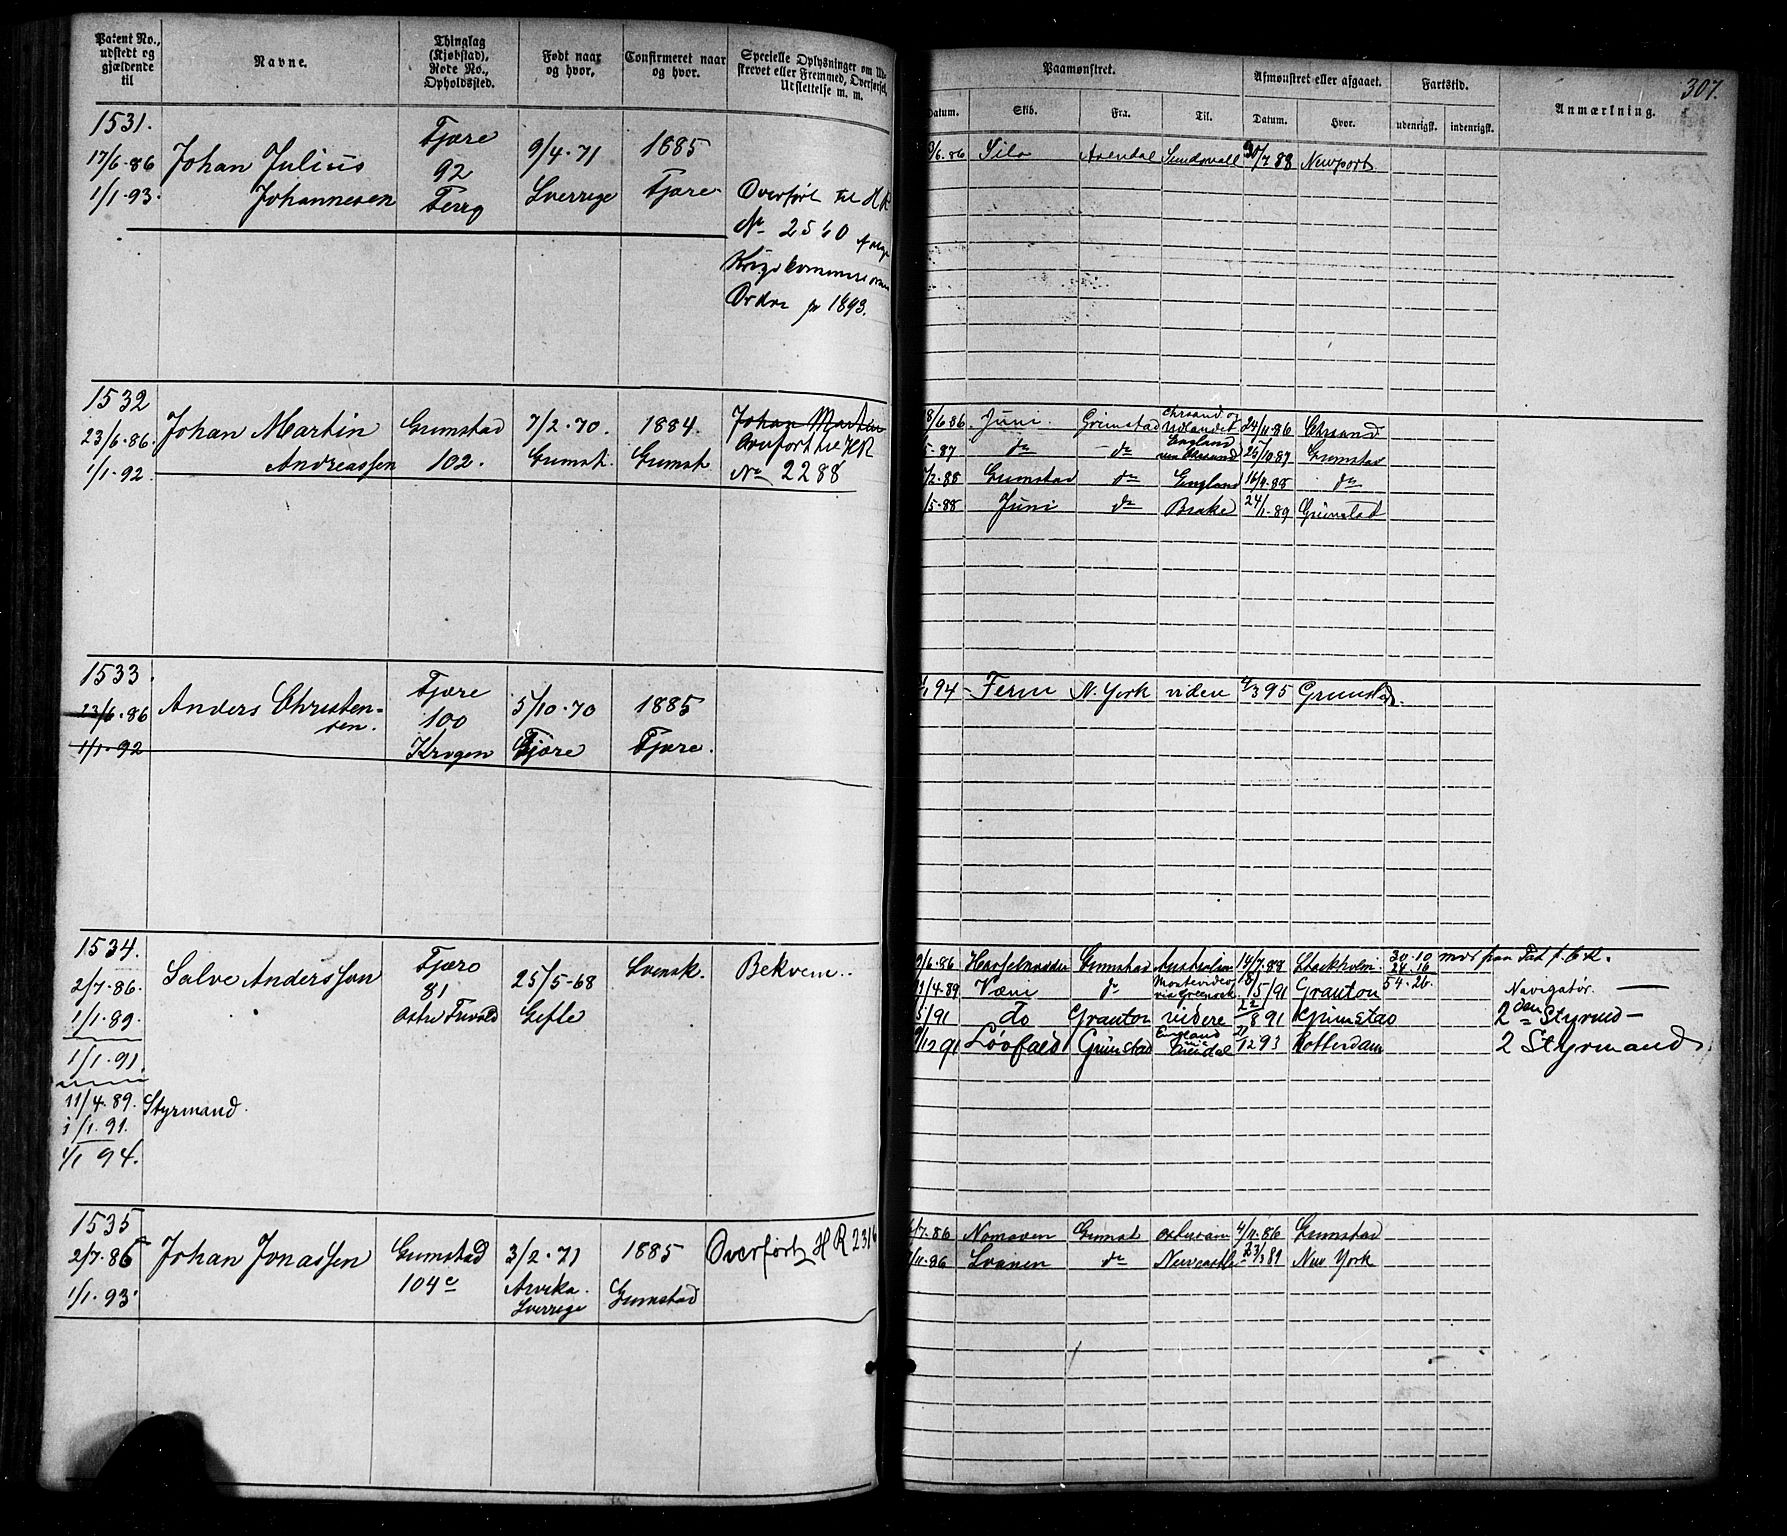 Patent No., udstedt og gjældende til
Navne.
Thinglag (Kjøbstad), Rode No., Opholdssted.
Født naar og hvor.
Confirmeret naar og hvor.
Specielle Oplysninger om Udstrevet eller Fremmed, Overførsel, Udslettelse m. m.
Paamønstret.
Datum.
Skib.
Fra.
Til.
Afmønstret eller afgaaet.
Datum.
Hvor.
Fartstid.
udenrigsk.
indenrigsk.
Anmærkning.
307.
1531.
17/6.86
1/1.93.
Johan Julius
Johannesen
Fjære
92
9/4.71
Sverrige
1885
Fjære
Overført til HR
No 2560
Ordre pr 1893.
6.86 Silo Arendal Sundsvall 30/7 88 Newport
1532
23/6.86.
1/1.92.
Johan Martin
Andreassen
Grimstad
102.
7/2.70.
Grimst.
1884.
Grimst.
Johan Martin
Overført til HR
No 2288
8/6 86 Juni. Grimstad Chrsand og Udlandet 24/11.86 Chrsand
5.87 do do England via Chrsand 25/10.87 Grimstad
2.88 Grimstad do England 16/4.88 do
5.88 Juni do Brake 24/1.89 Grimstad
1533.
23/6.86
1/1.92
Anders Christensen.
Fjære
100
Krogen
5/10.70
Fjære
1885
Fjære.
1 94 Ferm N. York videre 4/3 95 Grimstad.
1534.
2/7.86.
1/1.89.
1/1.91.
11/4.89. Styrmand.
1/1.91.
1/1 94.
Salve Andersson
Fjære
81
25/5-68
Gefle
Svensk.
Bekvem.
6.86 Grimstad Australien 14/7.88 Stockholm 30.10
24.16
1/4.89 Væni do Montevideo 18/5/91 Granton 54.26 Navigatør.
5/91 do Granton videre 22/8 91 Grimstad 2den Styrmd
12 91 Løvfald Grimstad England 12 93 Rotterdam 2 Styrmand
1535
2/7.86
1/1.93.
Johan Jonassen
Grimstad
104c
3/2.71
Arvika.
Sverrige
1885
Grimstad
Overført HR 2316
7.86 Nomaven Grimst 4/11.86 Grimstad
11.86 Svanen do Newcastle 23/3 89 New York